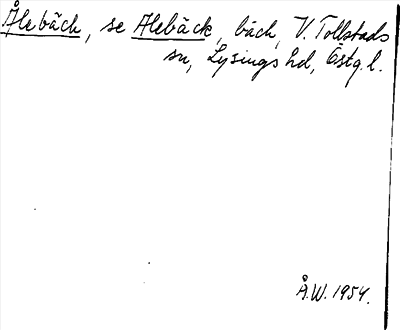 Ålebäck, se Alebäck, bäck, V. Tollstads
sn, Lysings hd, Östg.l.
Å.W. 1954.